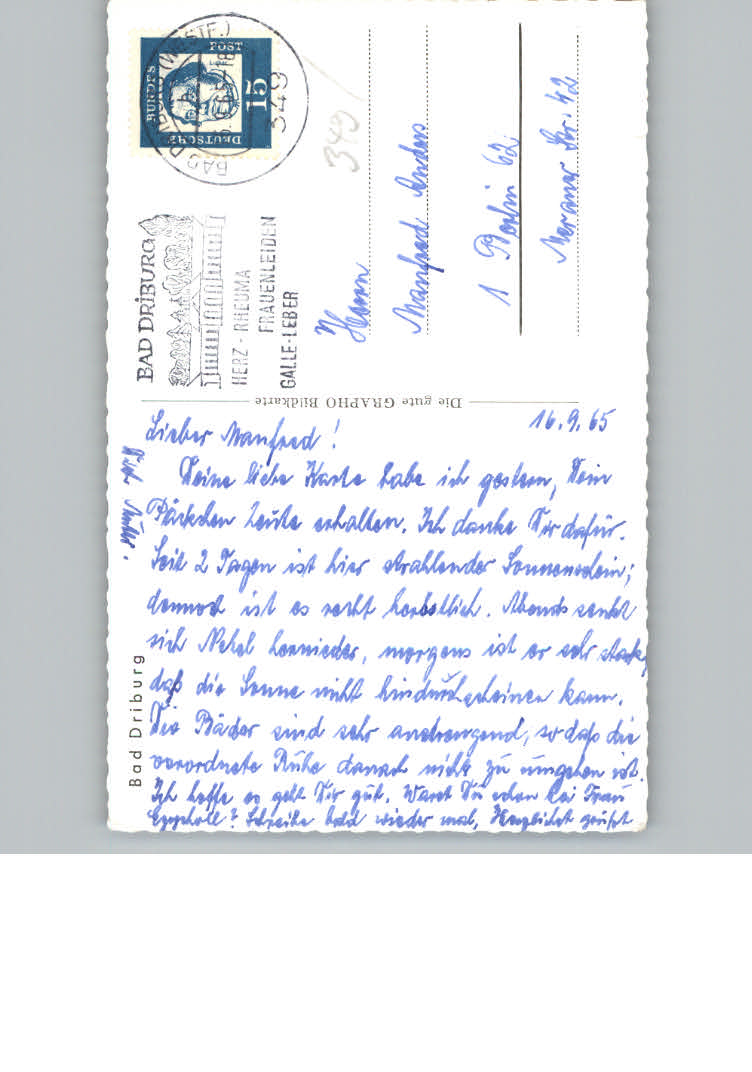 BAD DRIBURG (WESTF.)
349
DEUTSCHE
BUNDES
POST
15
BAD DRIBURG
HERZ - RHEUMA
FRAUENLEIDEN
GALLE-LEBER
349
Herrn
Manfred Anders
1 Berlin 62
Meraner Str. 42
Die gute GRAPHO Bildkarte
Bad Driburg
16.9.65
Lieber Manfred!
Deine liebe Karte habe ich gestern, Dein
Päckchen heute erhalten. Ich danke Dir dafür.
Seit 2 Tagen ist hier strahlender Sonnenschein;
dennoch ist es recht herbstlich. Abends senkt
sich Nebel hernieder, morgens ist er sehr stark,
daß die Sonne nicht hindurchscheinen kann.
Die Bäder sind sehr anstrengend, so daß die
verordnete Ruhe danach nicht zu umgehen ist.
Ich hoffe es geht Dir gut. Warst Du schon bei Frau
Schreibe bald wieder mal, Herzlichst grüßt
Dich Mutter.